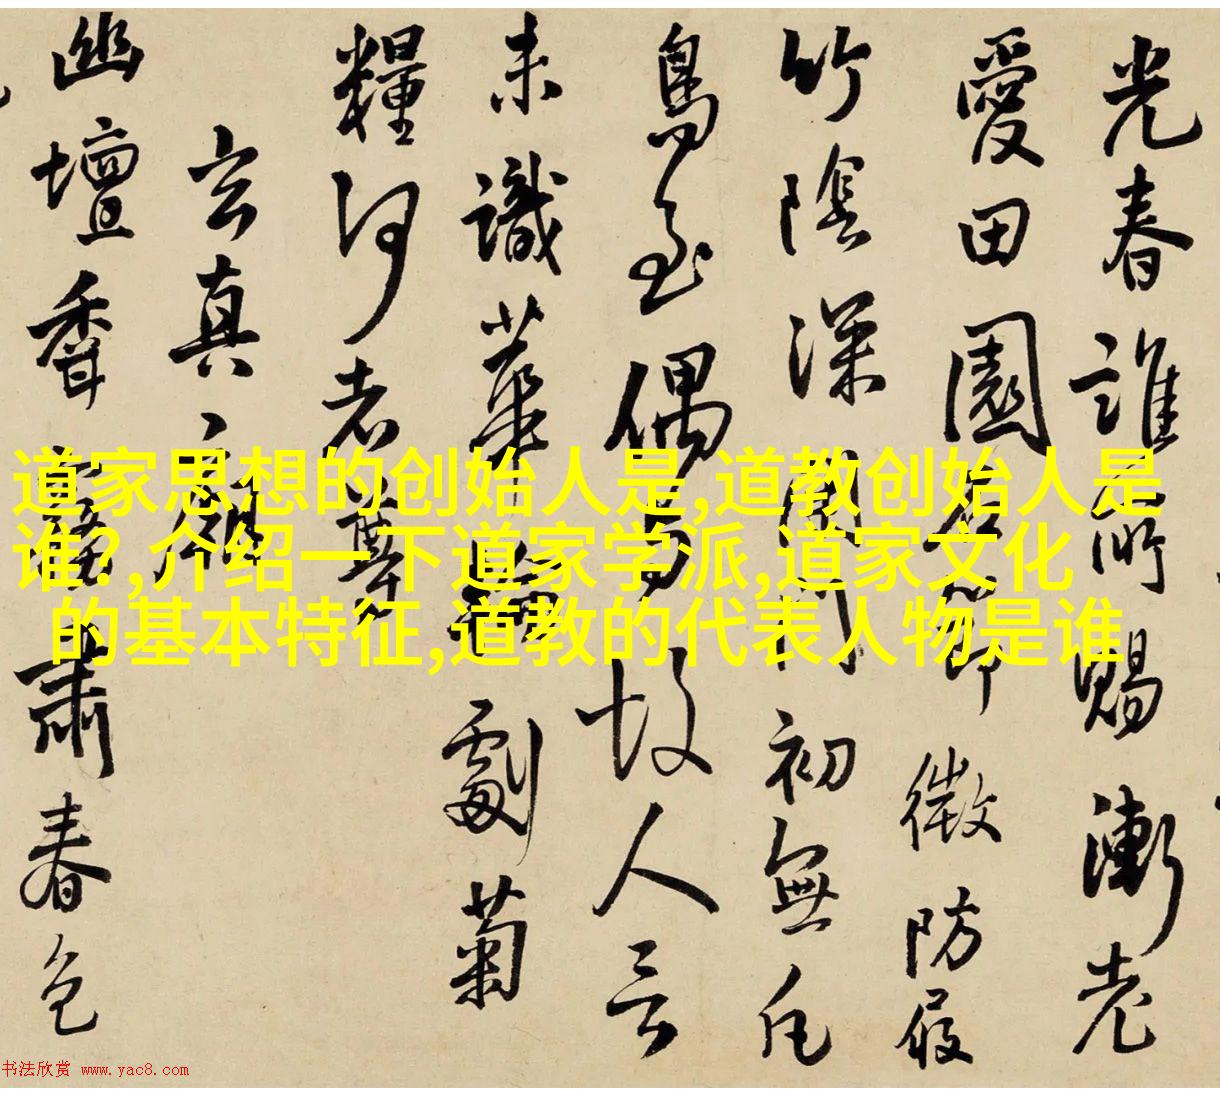 光春誰所賜漸老
愛田園名節微防屐
竹陰深閉門初無凡
鳥至偶有故人言
未識華劚菊
糧何老尊
玄真
幽壇香肅春色
道家思想的创始人是,道教创始人是
谁?,介绍一下道家学派,道家文化
的基本特征,道教的代表人物是谁
书法欣赏 www.yac8.com